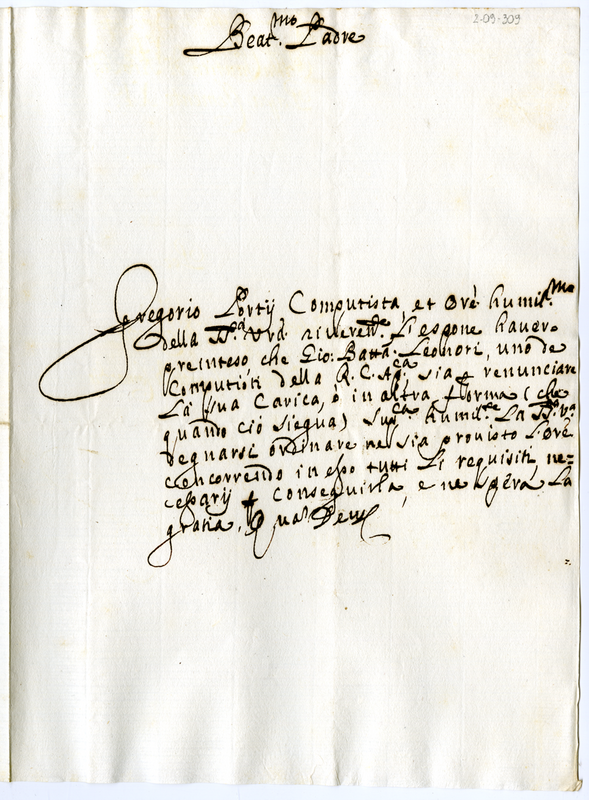 2-09-309
Beat.mo Padre
Gregorio Portij Computista, et Ore humil.mo
della S.tà Vrã riuerentem.te li espone hauer
preinteso che Gio: Batta Leonori, uno de
Computisti della R. C. Ap.ca sia p renunciare
La sua Carica, ò in altra forma (che
quando ciò siegua) supp.ca humilm.te La S.tà V.a
degnarsi ordinare ne sia prouisto l'Ore
concorrendo in esso tutti li requisiti ne=
cessarij p conseguirla, e ne spera La
gratia, Qua Deus